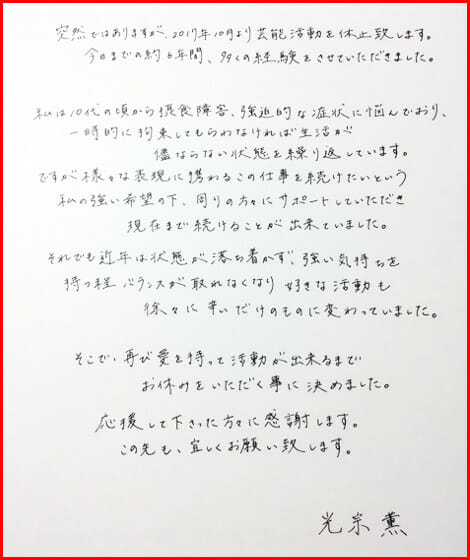 突然ではありますが、2017年10月より芸能活動を休止致します。
今日までの約6年間、多くの経験をさせていただきました。
私は10代の頃から摂食障害、強迫的な症状に悩んでおり、
一時的に拘束してもらわなければ生活が
儘ならない状態を繰り返しています。
ですが様々な表現に携わるこの仕事を続けたいという
私の強い希望の下、周りの方々にサポートしていただき
現在まで続けることが出来ていました。
それでも近年は状態が落ち着かず、強い気持ちを
持つ程バランスが取れなくなり 好きな活動も
徐々に辛いだけのものに変わっていました。
そこで、再び愛を持って活動が出来るまで
お休みをいただく事に決めました。
応援して下さった方々に感謝します。
この先も、宜しくお願い致します。
光宗薫